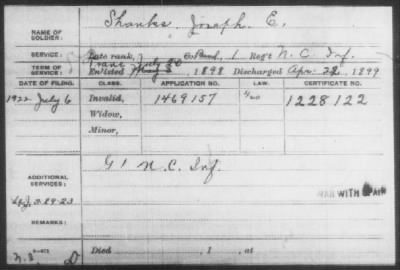 NAME OF SOLDIER: Shanks, Joseph E.
SERVICE: Late rank, Co. Band, 1 Reg't N.C. Inf.
TERM OF SERVICE: Enlisted July 20, 1898 Discharged Apr. 22, 1899
DATE OF FILING. CLASS. APPLICATION NO. LAW. CERTIFICATE NO.
1922 July 6 Invalid, 1469157 1228122
Widow,
Minor,
ADDITIONAL SERVICES: G 1 N.C. Inf.
3-29-23 WAR WITH SPAIN
REMARKS:
Died , 1 , at